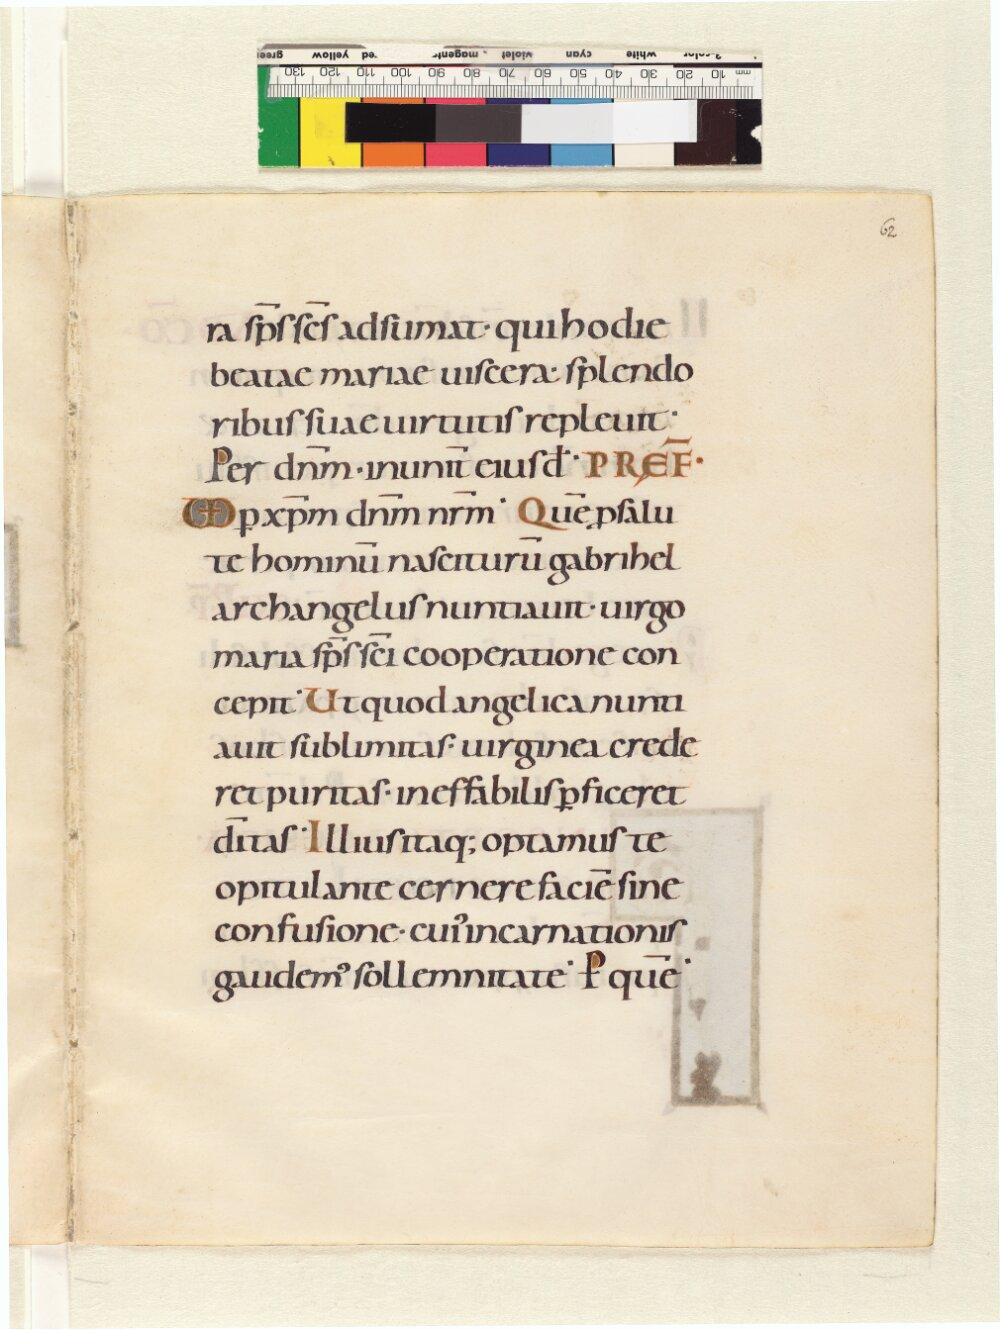 green yellow red magenta violet cyan white 3-color
130 120 110 100 90 80 70 60 50 40 30 20 10 mm
62
ra sp̄s sc̄s adsumat· qui hodie
beatae mariae uiscera· splendo
ribus suae uirtutis repleuit·
Per dn̄m· in unit̄ eiusd̄· PREF̄·
VD ꝑ xp̄m dn̄m nr̄m· Quē ꝓ salu
te hominū nasciturū gabrihel
archangelus nuntiauit· uirgo
maria sp̄s sc̄i cooperatione con
cepit· Ut quod angelica nunti
auit sublimitas· uirginea crede
ret puritas· ineffabilis ꝑficeret
dītas· Illius itaq; optamus te
opitulante cernere faciē sine
confusione· cuiꝰ incarnationis
gaudemꝰ sollemnitate· P quē·